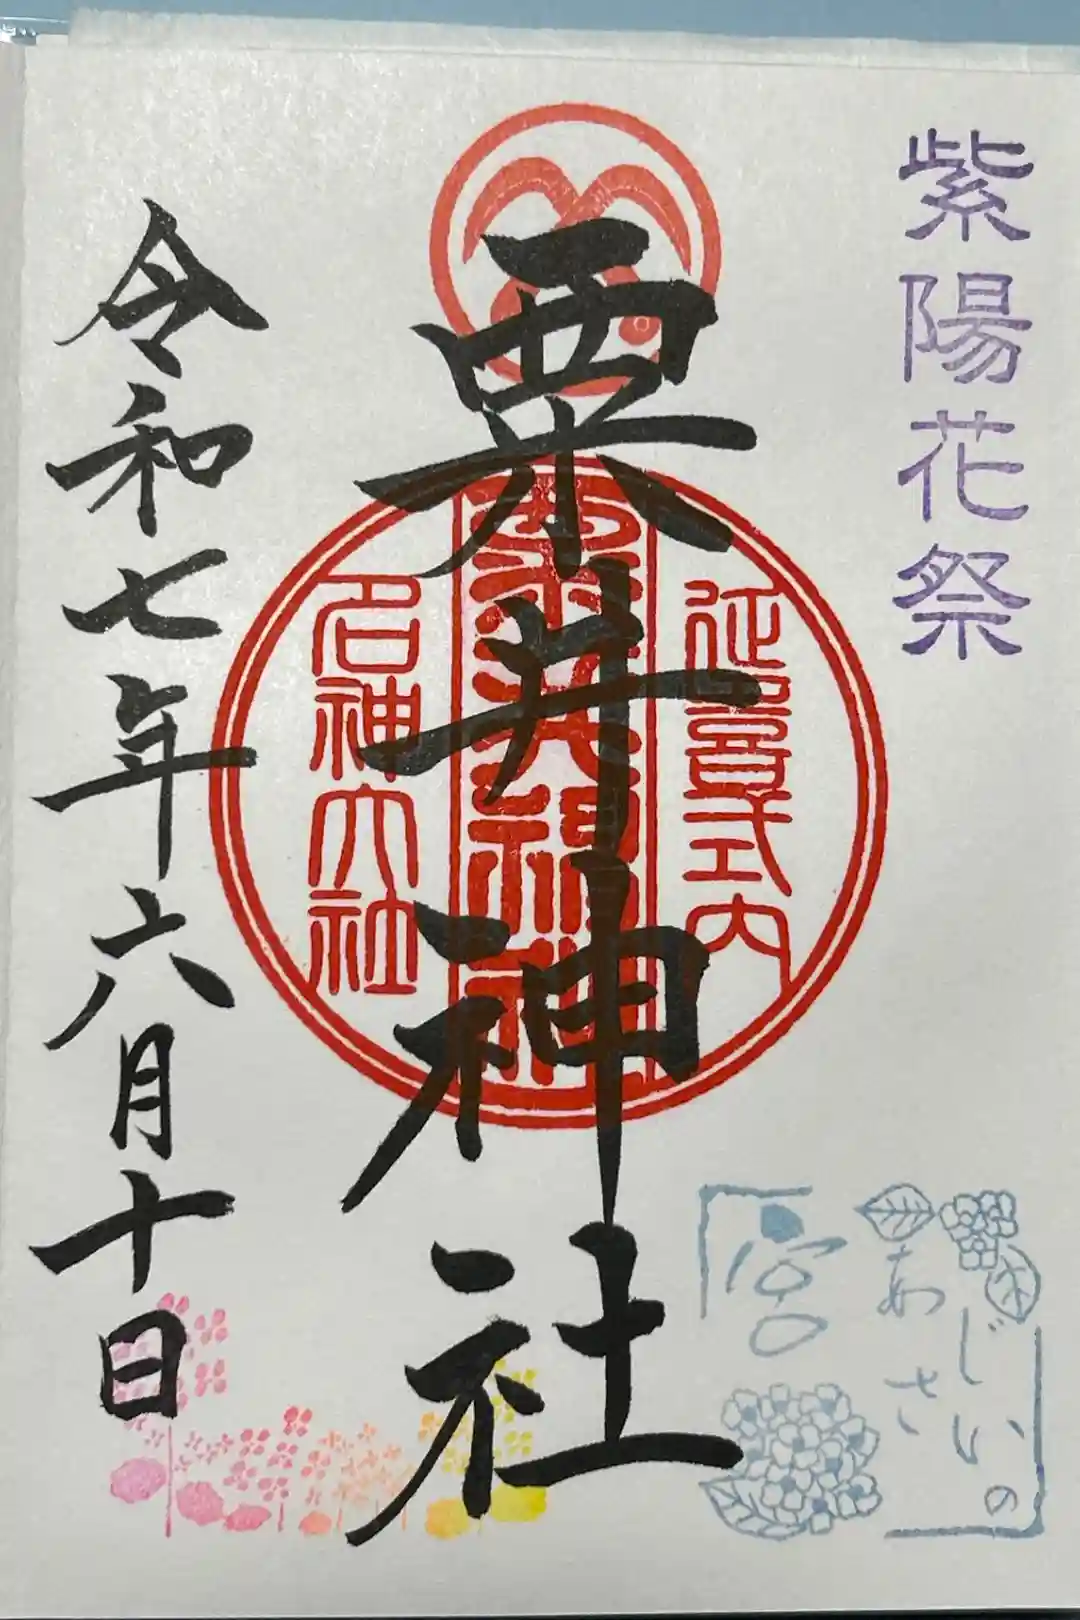 紫陽花祭
延喜式内
粟井神社
粟井神社
名神大社
令和七年六月十日
あじさいの
宮